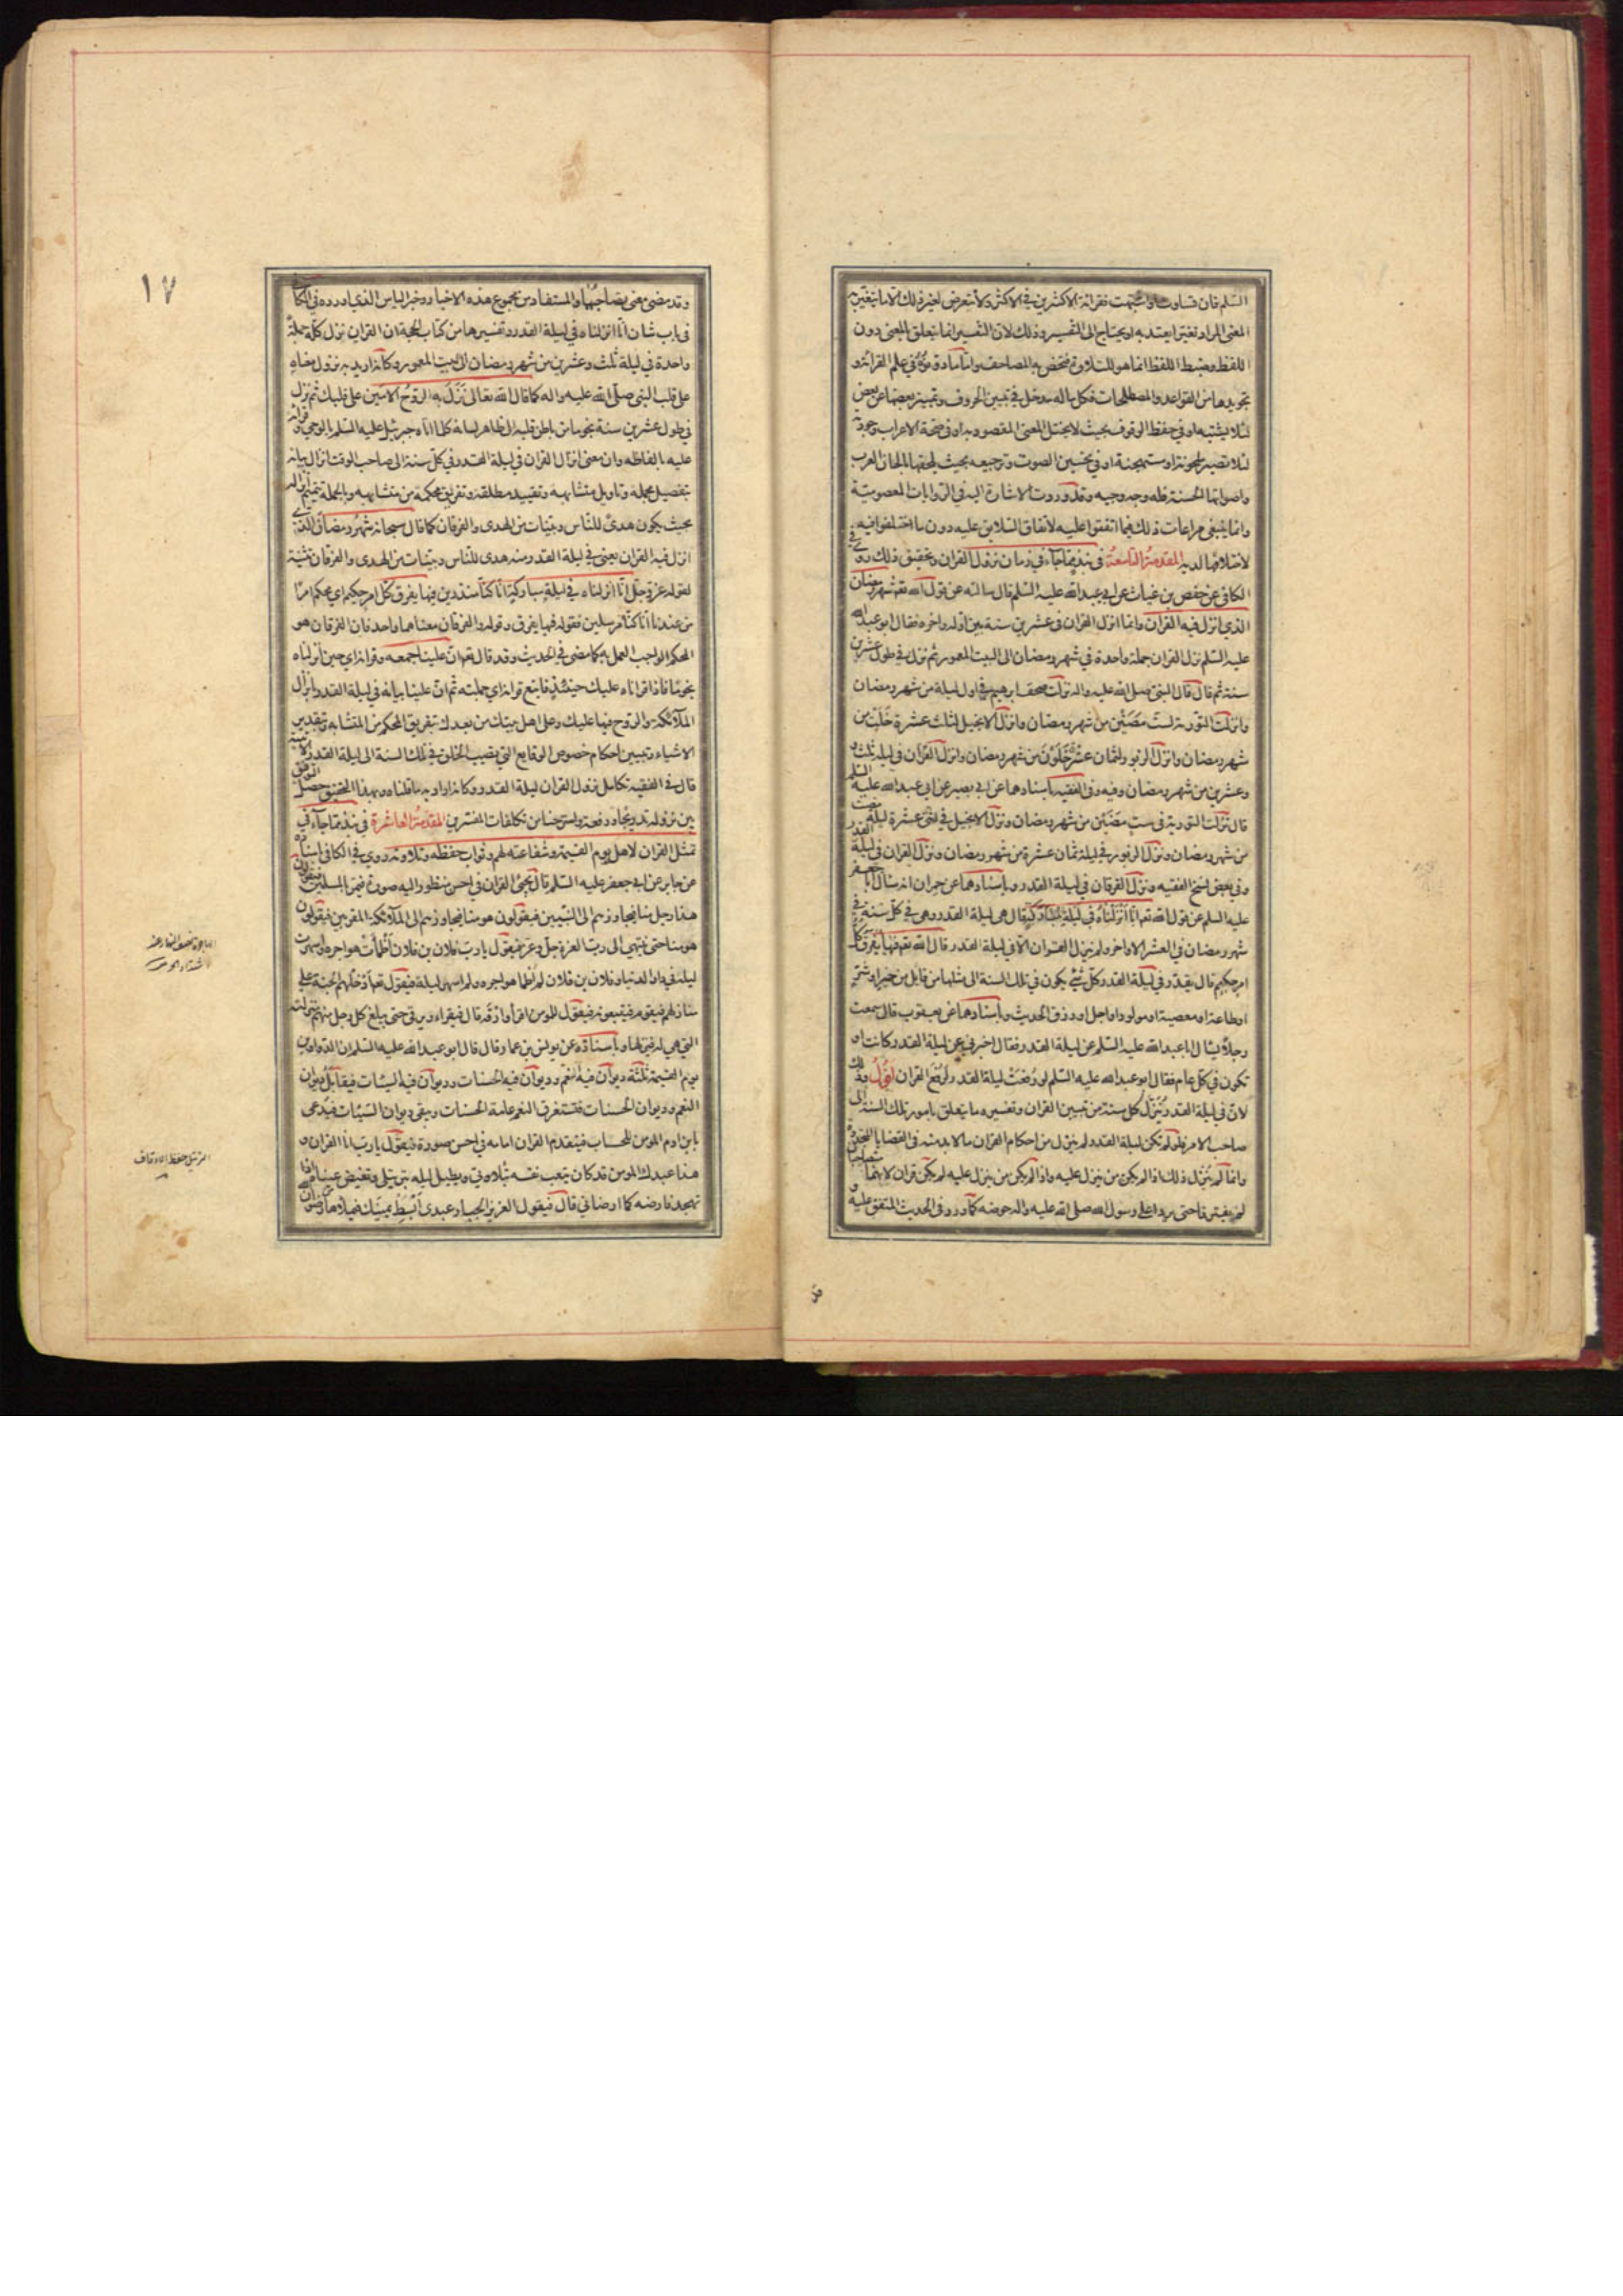 السلم فان تساوت او اشبهت فقراءة الاكثرين في الاكثر ولا نتعرض لغير ذلك الا ما يتغير به
المعنى المراد تغيرا يعتد به او يحتاج الى التفسير وذلك لان التفسير انما يتعلق بالمعنى دون
اللفظ وضبط اللفظ انما هو للتلاوة فيخص به المصاحف واما ما دونوه في علم القراءة و
تجويدها من القواعد والمصطلحات فكل ما له مدخل في تبيين الحروف وتمييز بعضها عن بعض
لئلا يشتبه او في حفظ الوقوف بحيث لا يختل المعنى المقصود به او في صحة الاعراب وجودته
لئلا تصير ملحونة او مستهجنة او في تحسين الصوت وترجيعه بحيث يلحقها بالحان العرب
واصواتها الحسنة فله وجه وجيه وقد وردت الاشارة اليه في الروايات المعصومية
وانما ينبغي مراعات ذلك فيما اتفقوا عليه لاتفاق التلاين عليه دون ما اختلفوا فيه
لاختلافها لديه المقدمة التاسعة في نبذ مما جاء في زمان نزول القران وتحقيق ذلك روى في
الكافي عن حفص بن غياث عن ابي عبد الله عليه السلم قال سالته عن قول الله تعه شهر رمضان
الذي انزل فيه القران وانما انزل القران في عشرين سنة بين اوله واخره فقال ابو عبد الله
عليه السلم نزل القران جملة واحدة في شهر رمضان الى البيت المعمور ثم نزل في طول عشرين
سنة ثم قال قال النبي صلى الله عليه واله نزلت صحف ابرهيم في اول ليلة من شهر رمضان
وانزلت التورية لست مضين من شهر رمضان وانزل الانجيل لثلث عشرة خلت من
شهر رمضان وانزل الزبور لثمان عشر خلون من شهر رمضان وانزل القران في ليلة ثلث و
وعشرين من شهر رمضان وفيه وفي الفقيه باسنادهما عن ابي بصير عن ابي عبد الله عليه السلم
قال نزلت التورية في ست مضين من شهر رمضان ونزل الانجيل في اثنى عشرة ليلة مضت
من شهر رمضان ونزل الزبور في ليلة ثمان عشرة من شهر رمضان ونزل القران في ليلة القدر
وفي بعض نسخ الفقيه ونزل الفرقان في ليلة القدر وباسنادهما عن حمران انه سال ابا جعفر
عليه السلم عن قول الله تعه انا انزلناه في ليلة مباركة قال هي ليلة القدر وهي في كل سنة في
شهر رمضان في العشر الاواخر ولم ينزل القران الا في ليلة القدر قال الله تعه فيها يفرق كل
امر حكيم قال يقدر في ليلة القدر كل شئ يكون في تلك السنة الى مثلها من قابل من خير او شر
او طاعة او معصية او مولود او اجل او رزق الحديث وباسنادهما عن يعقوب قال سمعت
رجلا يسال ابا عبد الله عليه السلم عن ليلة القدر فقال اخبرني عن ليلة القدر كانت او
تكون في كل عام فقال ابو عبد الله عليه السلم لو رفعت ليلة القدر لرفع القران اقول وذلك
لان في ليلة القدر ينزل كل سنة من تبيين القران وتفسيره ما يتعلق بامور تلك السنة الى
صاحب الامر فلو لم تكن ليلة القدر لم ينزل من احكام القران ما لا بد منه في القضايا المتجددة
وانما لم ينزل ذلك اذا لم يكن من ينزل عليه واذا لم يكن من ينزل عليه لم يكن قران لانهما متصاحبان
لن يفترقا حتى يردا على رسول الله صلى الله عليه واله حوضه كما ورد في الحديث المتفق عليه و
قد
١٧
وقد مضى معنى تصاحبهما والمستفاد من مجموع هذه الاخبار وخبر الياس الذي اورده في الكافي
في باب شان انا انزلناه في ليلة القدر وتفسيرها من كتاب الحجة ان القران نزل كله جملة
واحدة في ليلة ثلث وعشرين من شهر رمضان الى البيت المعمور وكانه اريد به نزول معناه
على قلب النبي صلى الله عليه واله كما قال الله تعالى نزل به الروح الامين على قلبك ثم نزل
في طول عشرين سنة نجوما من باطن قلبه الى ظاهر لسانه كلما اتاه جبرئيل عليه السلم بالوحي وقراه
عليه بالفاظه وان معنى انزال القران في ليلة القدر في كل سنة الى صاحب الوقت انزال بيانه
بتفصيل مجمله وتاويل متشابهه وتقييد مطلقه وتفريق محكمه من متشابهه وبالجملة تتميم انزاله
بحيث يكون هدى للناس وبينات من الهدى والفرقان كما قال سبحانه شهر رمضان الذي
انزل فيه القران يعني في ليلة القدر منه هدى للناس وبينات من الهدى والفرقان تثنية
لقوله عز وجل انا انزلناه في ليلة مباركة انا كنا منذرين فيها يفرق كل امر حكيم اي محكم امرا
من عندنا انا كنا مرسلين فقوله فيها يفرق وقوله والفرقان معناهما واحد فان الفرقان هو
المحكم الواجب العمل به كما مضى في الحديث وقد قال تعه ان علينا جمعه وقرانه اي حين انزلناه
نجوما فاذا قراناه عليك حينئذ فاتبع قرانه اي جملته ثم ان علينا بيانه في ليلة القدر بانزال
الملائكة والروح فيها عليك وعلى اهل بيتك من بعدك بتفريق المحكم من المتشابه وبتقدير
الاشياء وتبيين احكام خصوص الوقايع التي تصيب الخلق في تلك السنة الى ليلة القدر الاتية
قال في الفقيه تكامل نزول القران ليلة القدر وكانه اراد به ما قلناه وبهذا التحقيق حصل التوفيق
بين نزوله تدريجا ودفعة واسترحنا من تكلفات المفسرين المقدمة العاشرة في نبذ مما جاء في
تمثل القران لاهل يوم القيمة وشفاعته لهم وثواب حفظه وتلاوته روي في الكافي باسناده
عن جابر عن ابي جعفر عليه السلم قال يجئ القران في احسن منظور اليه صورة فيمر بالمسلمين فيقولون
هذا رجل منا فيجاوزهم الى النبيين فيقولون هو منا فيجاوزهم الى الملائكة المقربين فيقولون
هو منا حتى ينتهي الى رب العزة جل وعز فيقول يا رب فلان بن فلان اظمات هواجره واسهرت
ليله في دار الدنيا وفلان بن فلان لم اظما هواجره ولم اسهر ليله فيقول تعه ادخلهم الجنة على
منازلهم فيقوم فيتبعونه فيقول للمؤمن اقرا وارقه قال فيقراء ويرقى حتى يبلغ كل رجل منهم منزلته
التي هي له فينزلها وباسناده عن يونس بن عمار قال قال ابو عبد الله عليه السلم ان الدواوين
يوم القيمة ثلثة ديوان فيه النعم وديوان فيه الحسنات وديوان فيه السيئات فيقابل بين ديوان
النعم وديوان الحسنات فتستغرق النعم عامة الحسنات ويبقى ديوان السيئات فيدعى
بابن ادم المؤمن للحساب فيتقدم القران امامه في احسن صورة فيقول يا رب انا القران و
هذا عبدك المؤمن قد كان يتعب نفسه بتلاوتي ويطيل ليله بترتيلي وتفيض عيناه اذا
تهجد فارضه كما ارضاني قال فيقول العزيز الجبار عبدي ابسط يمينك فيملاها من رضوان
الترتيل حفظ الاوقاف